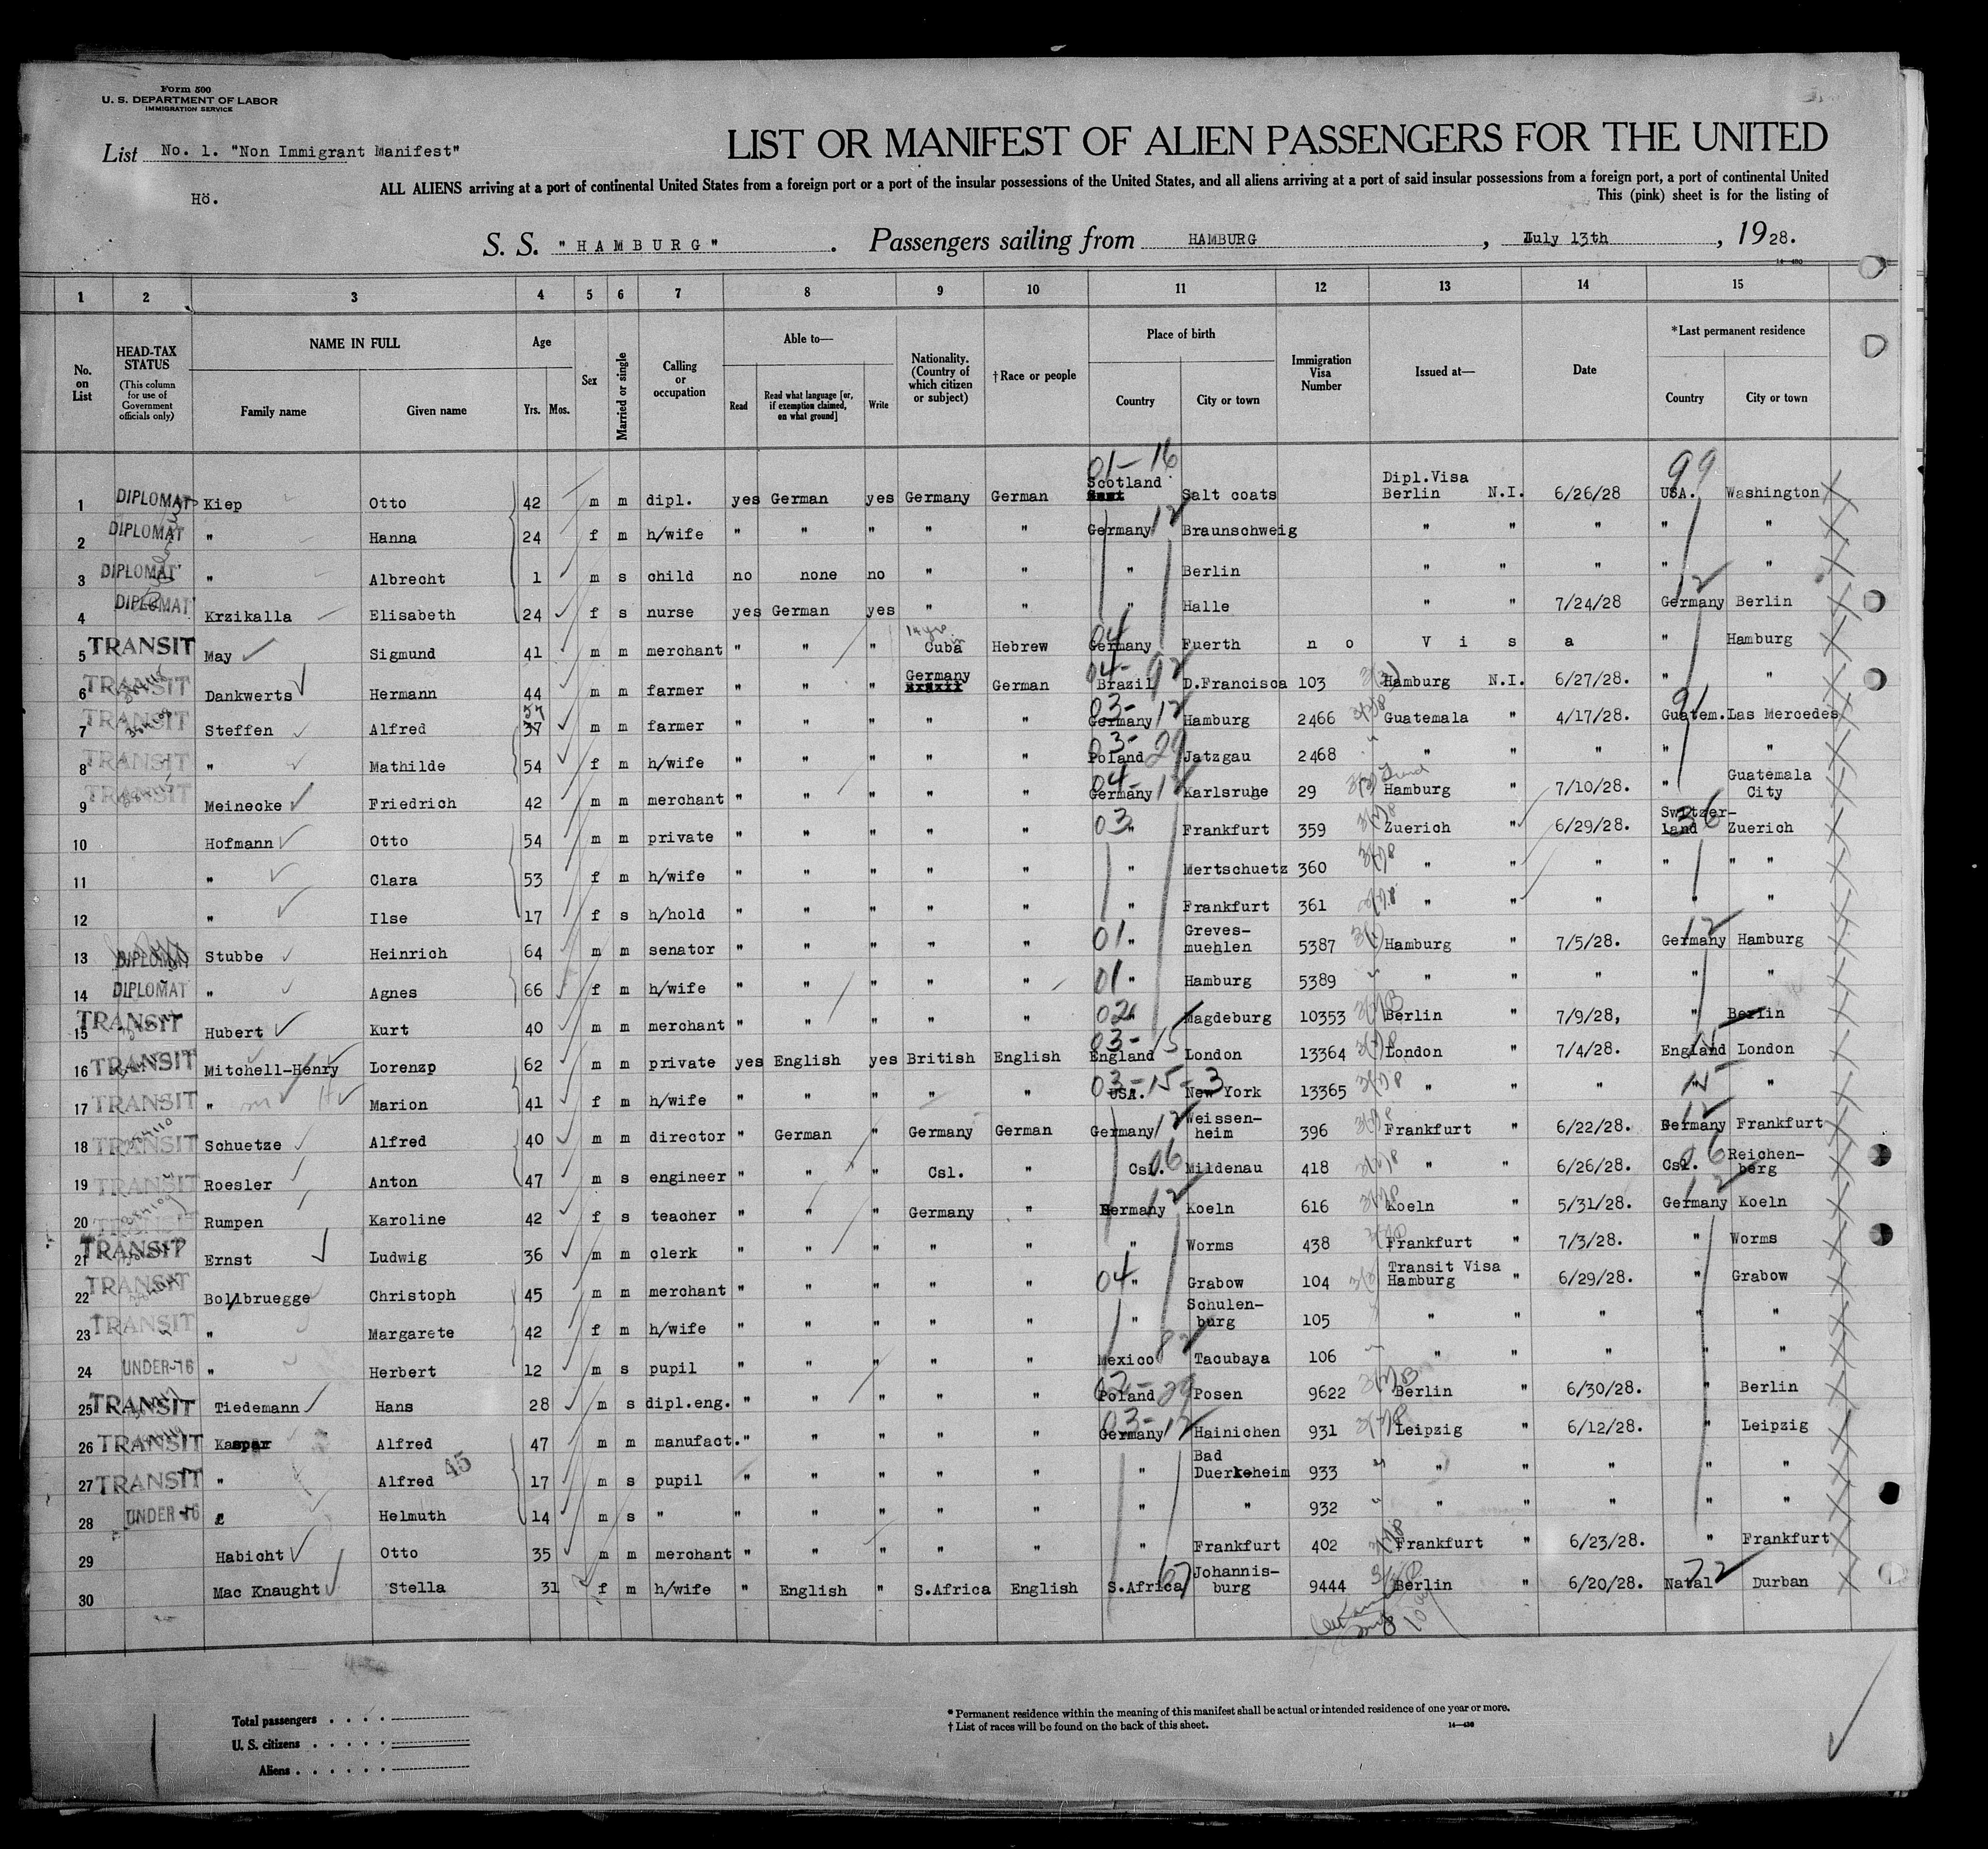 Form 500
U. S. DEPARTMENT OF LABOR
IMMIGRATION SERVICE
List No. 1. "Non Immigrant Manifest"
Hö.
LIST OR MANIFEST OF ALIEN PASSENGERS FOR THE UNITED
ALL ALIENS arriving at a port of continental United States from a foreign port or a port of the insular possessions of the United States, and all aliens arriving at a port of said insular possessions from a foreign port, a port of continental United
This (pink) sheet is for the listing of
S. S. "HAMBURG". Passengers sailing from HAMBURG, July 13th, 1928.
14—430
1 2 3 4 5 6 7 8 9 10 11 12 13 14 15
No. on List
HEAD-TAX STATUS (This column for use of Government officials only)
NAME IN FULL Family name Given name
Age Yrs. Mos.
Sex
Married or single
Calling or occupation
Able to— Read Read what language [or, if exemption claimed, on what ground] Write
Nationality. (Country of which citizen or subject)
†Race or people
Place of birth Country City or town
Immigration Visa Number
Issued at—
Date
*Last permanent residence Country City or town
01-16 99
1 DIPLOMAT Kiep Otto 42 m m dipl. yes German yes Germany German Scotland Salt coats Dipl.Visa Berlin N.I. 6/26/28 USA. Washington
2 DIPLOMAT " Hanna 24 f m h/wife " " " " " Germany 12 Braunschweig " " " " "
3 DIPLOMAT " Albrecht 1 m s child no none no " " " Berlin " " " " "
4 DIPLOMAT Krzikalla Elisabeth 24 f s nurse yes German yes " " " Halle " " 7/24/28 Germany 12 Berlin
5 TRANSIT May Sigmund 41 m m merchant " " " Cuba Hebrew 04 Germany Fuerth no Visa " Hamburg
6 TRANSIT Dankwerts Hermann 44 m m farmer " " " Germany German 04- Brazil 92 D.Francisca 103 Hamburg N.I. 6/27/28. " "
7 TRANSIT Steffen Alfred 57 37 m m farmer " " " " " 03- Germany 12 Hamburg 2466 Guatemala " 4/17/28. Guatem. 91 Las Mercedes
8 TRANSIT " Mathilde 54 f m h/wife " " " " " 03- Poland 29 Jatzgau 2468 " " " " "
9 TRANSIT Meinecke Friedrich 42 m m merchant " " " " " 04- Germany 12 Karlsruhe 29 Hamburg " 7/10/28. " Guatemala City
10 Hofmann Otto 54 m m private " " " " " 03 " Frankfurt 359 Zuerich " 6/29/28. Switzer-land 36 Zuerich
11 " Clara 53 f m h/wife " " " " " " Mertschuetz 360 " " " " " "
12 " Ilse 17 f s h/hold " " " " " " Frankfurt 361 " " " " "
13 DIPLOMAT Stubbe Heinrich 64 m m senator " " " " " 01 " Greves-muehlen 5387 Hamburg " 7/5/28. Germany 12 Hamburg
14 DIPLOMAT " Agnes 66 f m h/wife " " " " " 01 " Hamburg 5389 " " " " "
15 TRANSIT Hubert Kurt 40 m m merchant " " " " " 02 " Magdeburg 10353 Berlin " 7/9/28, " Berlin
16 TRANSIT Mitchell-Henry Lorenzp 62 m m private yes English yes British English 03- England 15 London 13364 London " 7/4/28. England London
17 TRANSIT " Marion 41 f m h/wife " " " " " 03-15-3 USA. New York 13365 " " " " 15 "
18 TRANSIT Schuetze Alfred 40 m m director " German " Germany German Germany 12 Weissen-heim 396 Frankfurt " 6/22/28. Germany 12 Frankfurt
19 TRANSIT Roesler Anton 47 m s engineer " " " Csl. " Csl. 06 Mildenau 418 " " 6/26/28. Csl. 06 Reichen-berg
20 TRANSIT Rumpen Karoline 42 f s teacher " " " Germany " Germany 12 Koeln 616 Koeln " 5/31/28. Germany 12 Koeln
21 TRANSIT Ernst Ludwig 36 m m clerk " " " " " " Worms 438 Frankfurt " 7/3/28. " Worms
22 TRANSIT Bollbruegge Christoph 45 m m merchant " " " " " 04 " Grabow 104 Transit Visa Hamburg " 6/29/28. " Grabow
23 TRANSIT " Margarete 42 f m h/wife " " " " " " Schulen-burg 105 " " " " "
24 UNDER-16 " Herbert 12 m s pupil " " " " " Mexico 82 Tacubaya 106 " " " " "
25 TRANSIT Tiedemann Hans 28 m s dipl.eng. " " " " " 02- Poland 29 Posen 9622 Berlin " 6/30/28. " Berlin
26 TRANSIT Kaspar Alfred 47 m m manufact. " " " " " 03- Germany 12 Hainichen 931 Leipzig " 6/12/28. " Leipzig
27 TRANSIT " Alfred 45 17 m s pupil " " " " " " Bad Duerkeheim 933 " " " " "
28 UNDER-16 " Helmuth 14 m s " " " " " " " " 932 " " " " "
29 Habicht Otto 35 m m merchant " " " " " " Frankfurt 402 Frankfurt " 6/23/28. " Frankfurt
30 Mac Knaught Stella 31 f m h/wife " English " S.Africa English S.Africa 67 Johannis-burg 9444 Berlin " 6/20/28. Natal 72 Durban
Total passengers . . . .
U. S. citizens . . . . .
Aliens . . . . . .
* Permanent residence within the meaning of this manifest shall be actual or intended residence of one year or more.
† List of races will be found on the back of this sheet.
14—430